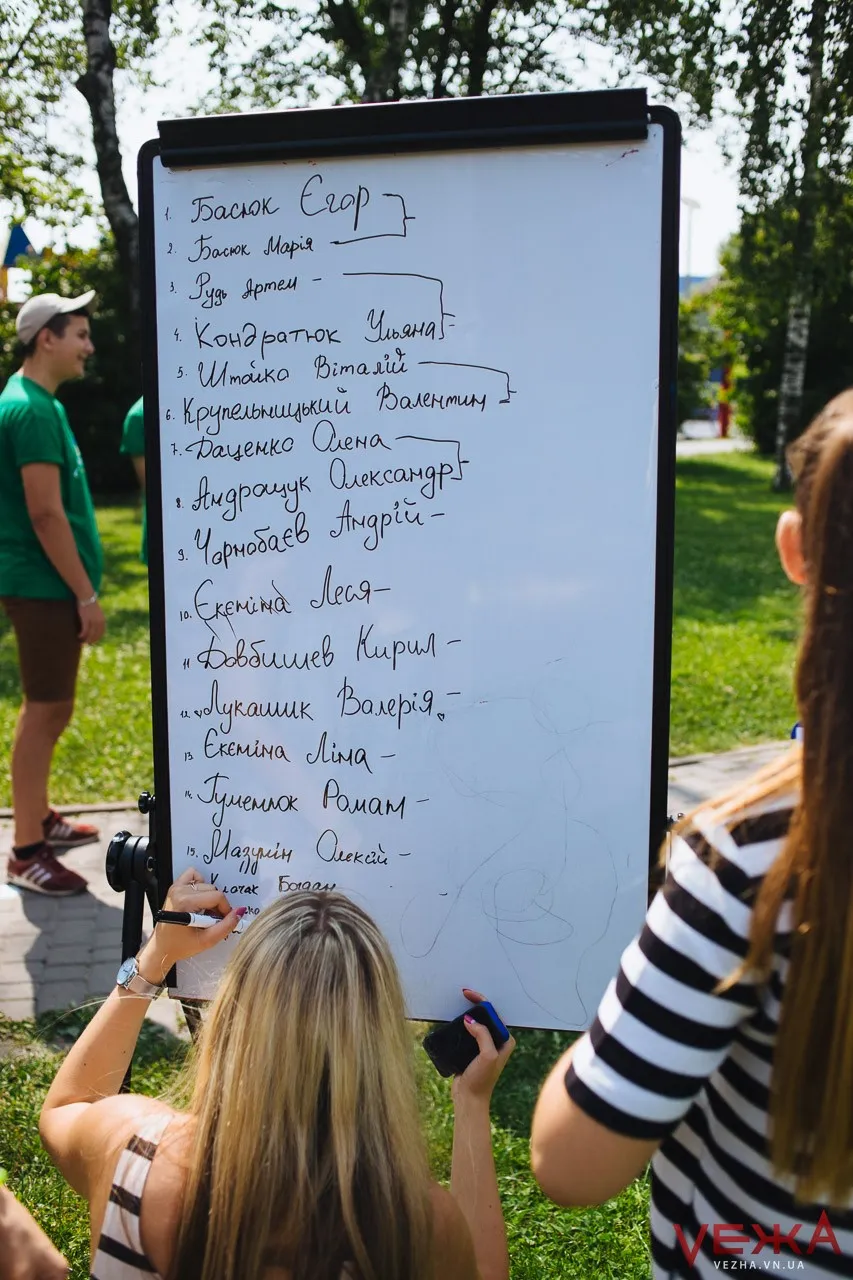 1. Басюк Єгор
2. Басюк Марія
3. Рудь Артем -
4. Кондратюк Уляна
5. Штойко Віталій
6. Крупельницький Валентин
7. Даценко Олена
8. Андращук Олександр
9. Чорнобаєв Андрій -
10. Екєміна Леся -
11. Довбишев Кирил -
12. Лукашик Валерія -
13. Екєміна Ліма -
14. Гуменюк Роман -
15. Мазунін Олексій -
Богдан
ВЕЖА
VEZHA.VN.UA